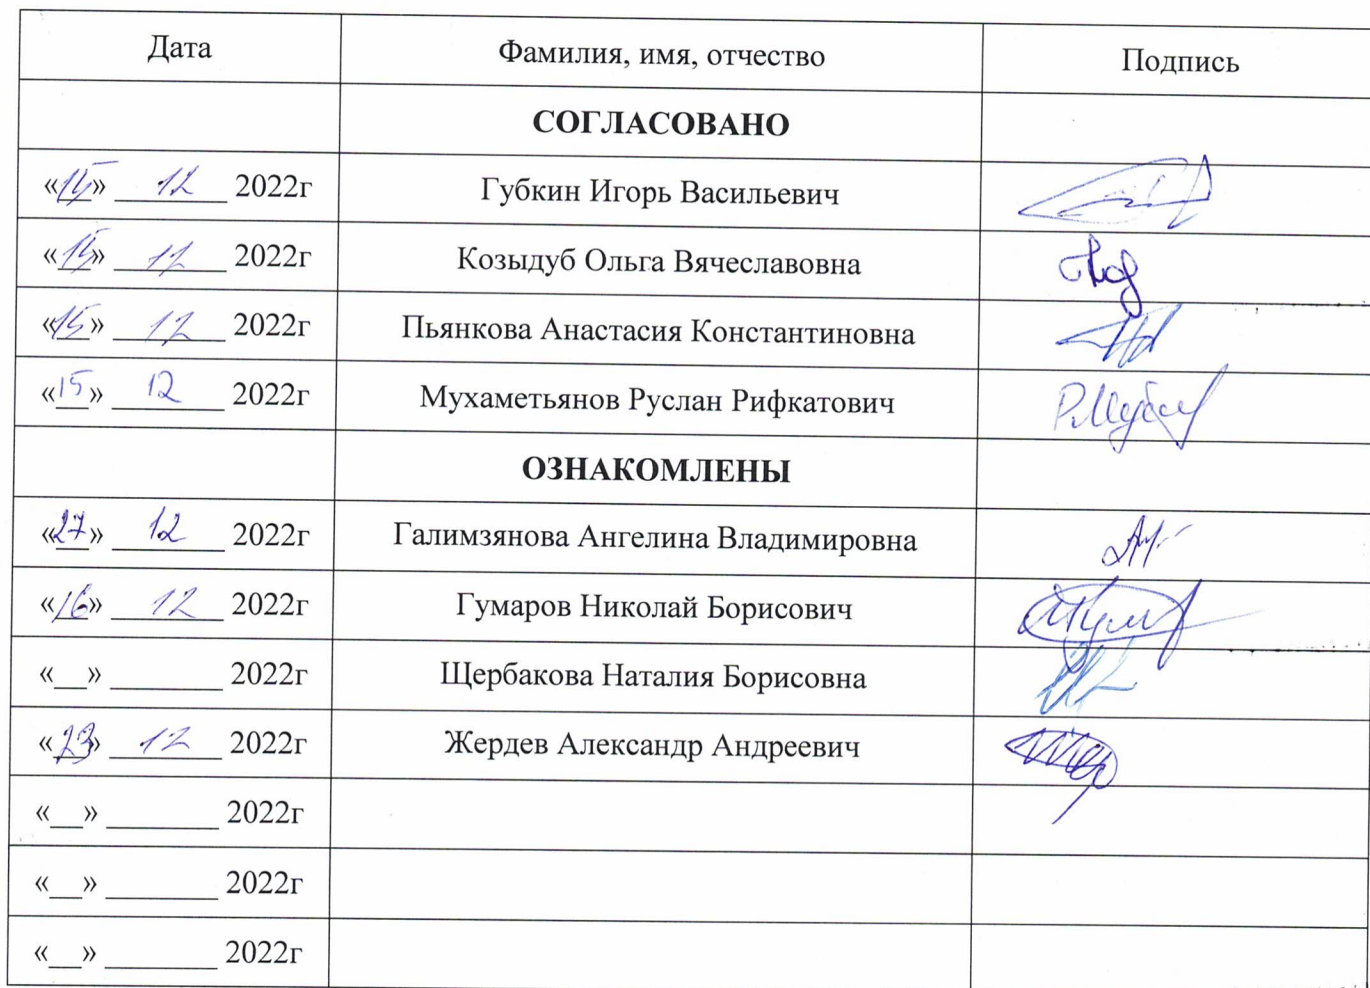 Дата Фамилия, имя, отчество Подпись
СОГЛАСОВАНО
«15» 12 2022г Губкин Игорь Васильевич
«15» 12 2022г Козыдуб Ольга Вячеславовна
«15» 12 2022г Пьянкова Анастасия Константиновна
«15» 12 2022г Мухаметьянов Руслан Рифкатович
ОЗНАКОМЛЕНЫ
«27» 12 2022г Галимзянова Ангелина Владимировна
«16» 12 2022г Гумаров Николай Борисович
«__» _______ 2022г Щербакова Наталия Борисовна
«23» 12 2022г Жердев Александр Андреевич
«__» _______ 2022г
«__» _______ 2022г
«__» _______ 2022г